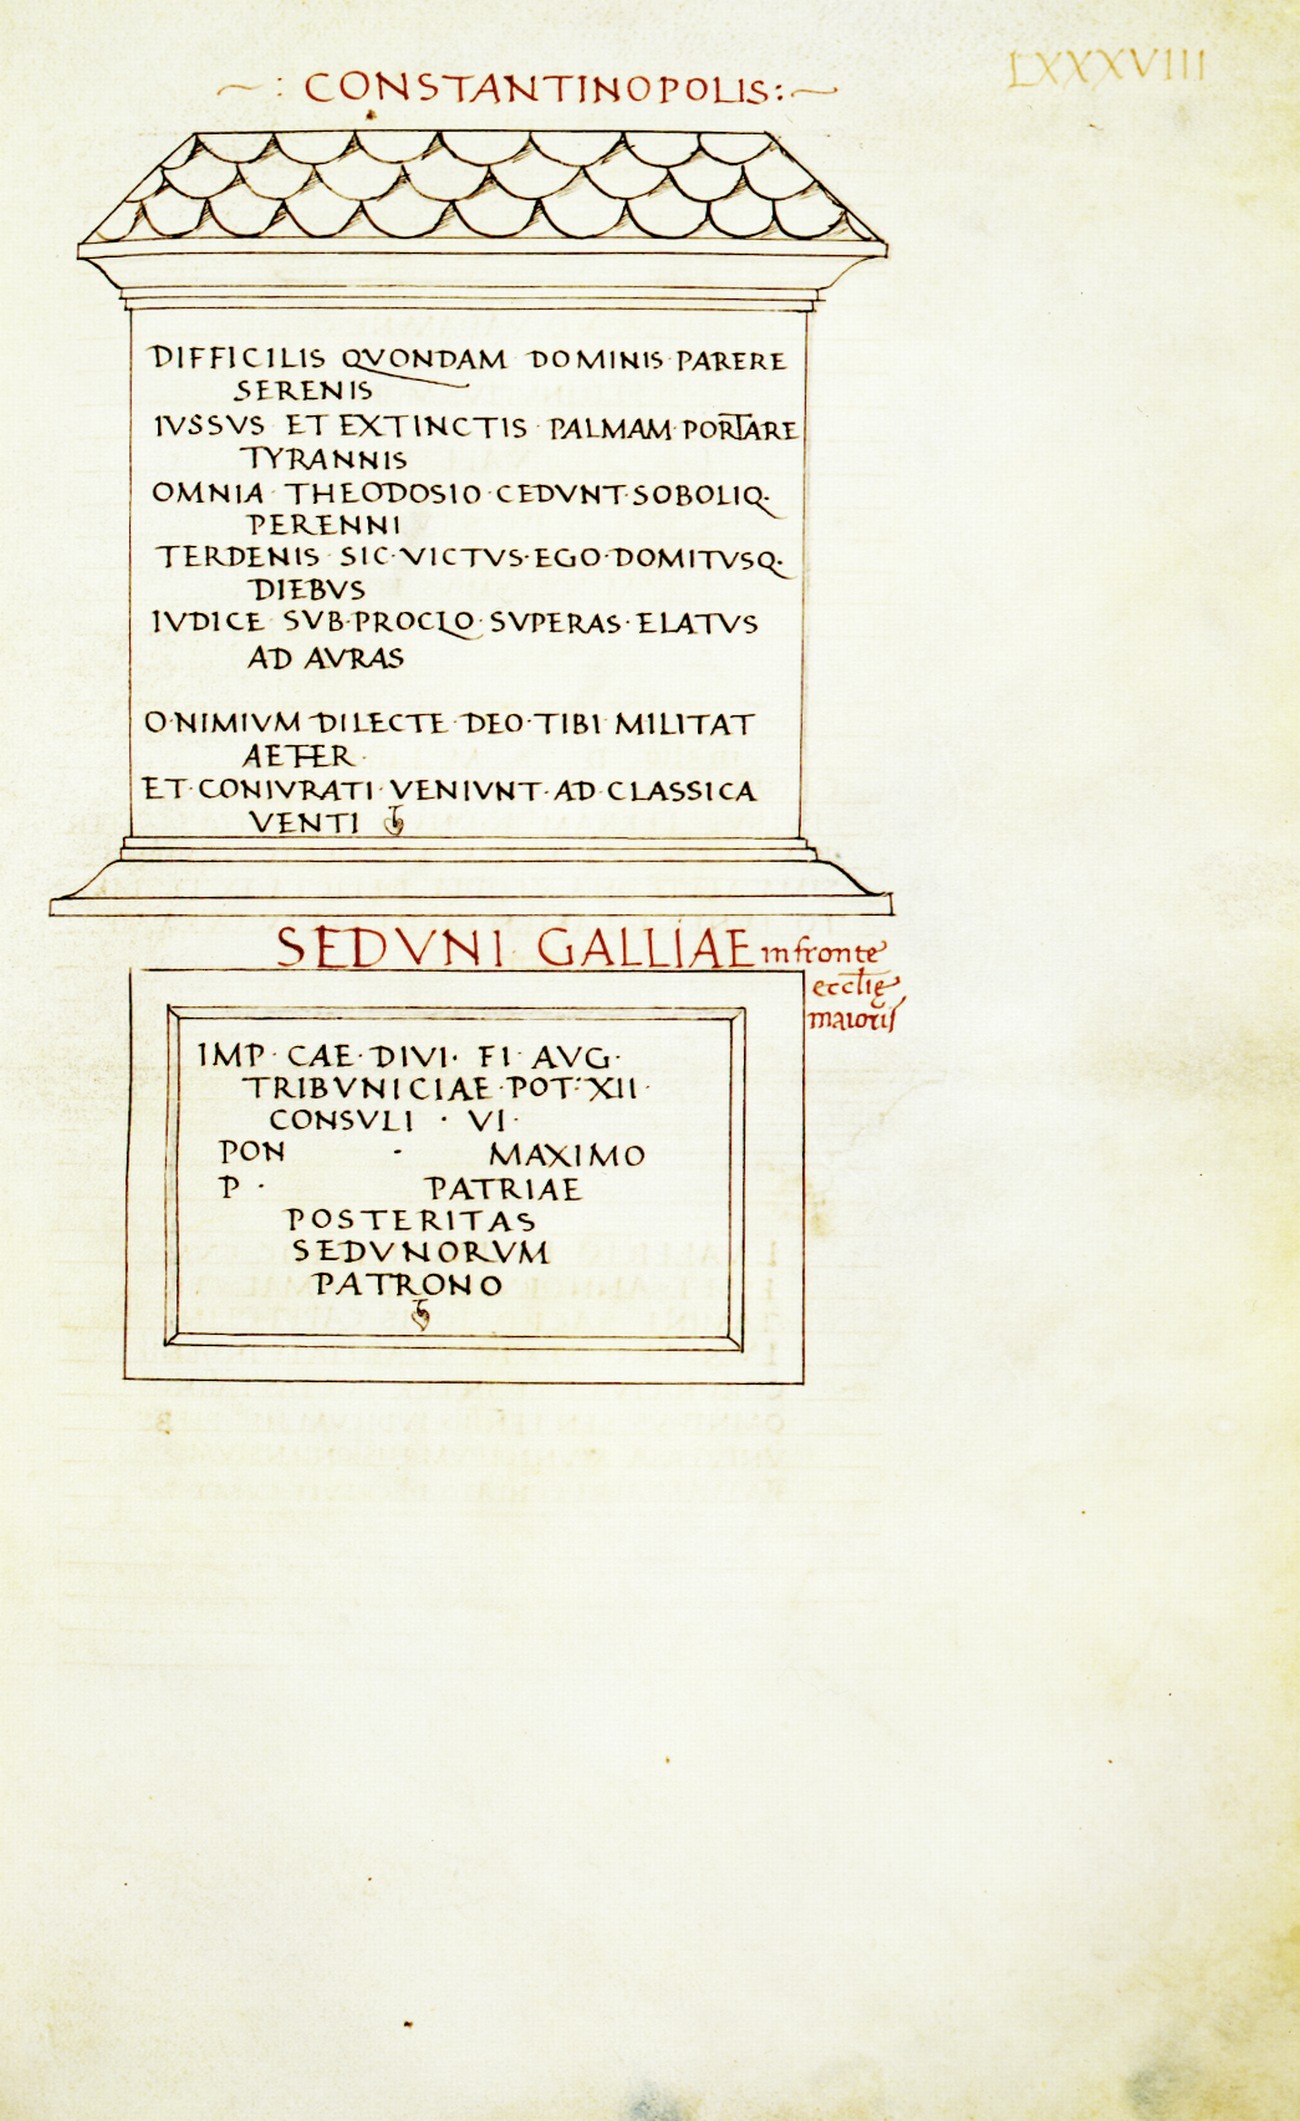 LXXXVIII
~ : CONSTANTINOPOLIS: ~
DIFFICILIS QVONDAM DOMINIS·PARERE
SERENIS
IVSSVS ET EXTINCTIS · PALMAM·PORTARE
TYRANNIS
OMNIA · THEODOSIO·CEDVNT·SOBOLIQ·
PERENNI
TERDENIS SIC·VICTVS·EGO·DOMITVSQ·
DIEBVS
IVDICE SVB·PROCLO·SVPERAS·ELATVS
AD AVRAS
O·NIMIVM DILECTE·DEO·TIBI MILITAT
AETHER·
ET·CONIVRATI·VENIVNT·AD·CLASSICA
VENTI
SEDVNI GALLIAE in fronte
ecclīę
maioris
IMP· CAE·DIVI· FI· AVG·
TRIBVNICIAE·POT·XII·
CONSVLI · VI·
PON · MAXIMO
P · PATRIAE
POSTERITAS
SEDVNORVM
PATRONO